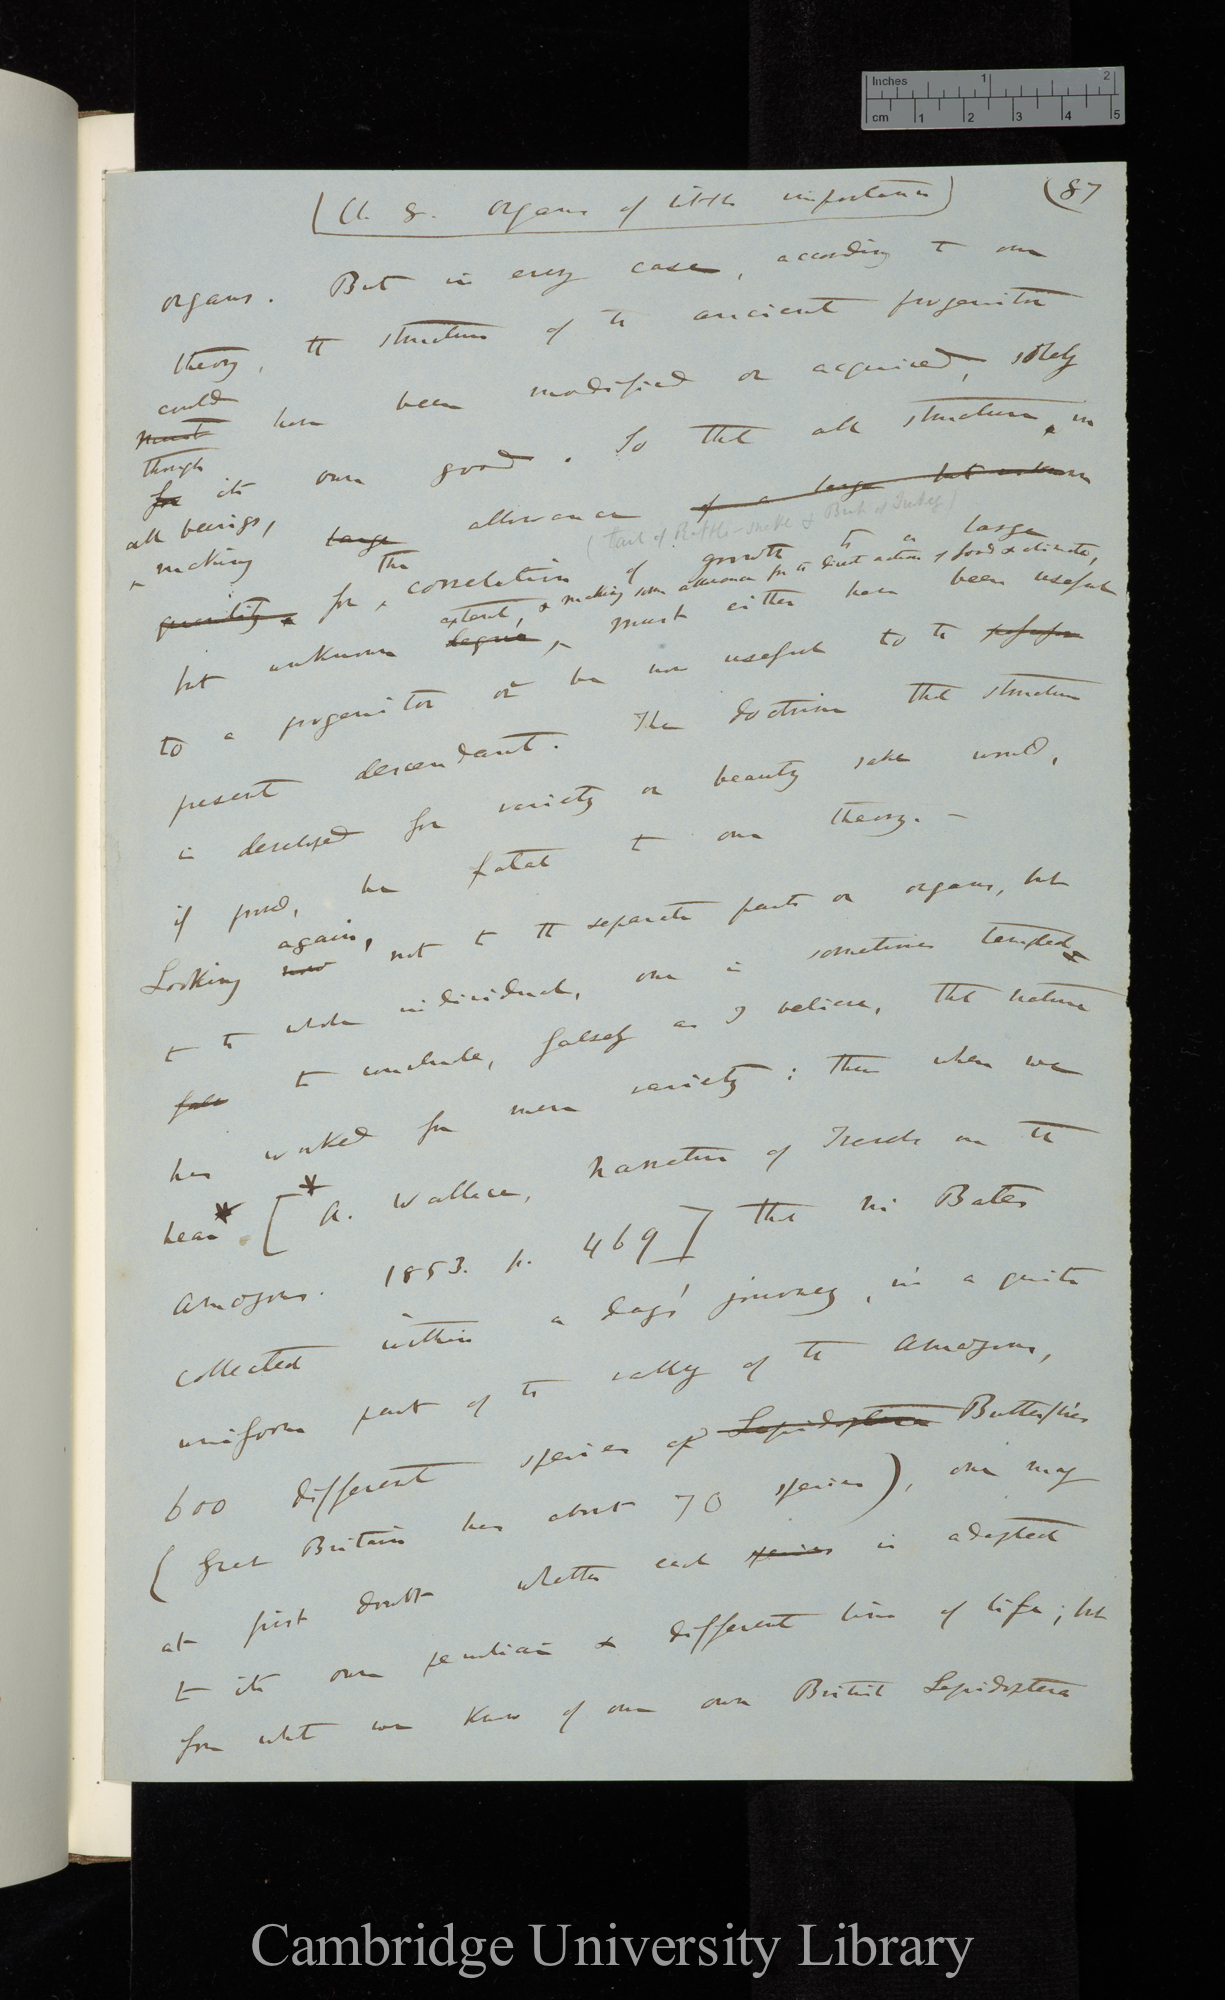 Inches 1 2
cm 1 2 3 4 5
(Ch. 8. Organs of little importance) (87
organs. But in every case, according to our
theory, the structure of the ancient progenitor
could
must have been modified or acquired, solely
though
for its own good. So that all structures, in
all beings,
making large allowance of a large but unknown
(Tail of Rattle-snake & Bush of Turkey)
quantity for the correlation of growth to a large
extent, & making some allowance for the direct action of food & climate,
but unknown degree, must either have been useful
to a progenitor or be now useful to the
present descendant. The doctrine that structure
is developed for variety or beauty sake would,
if proved, be fatal to our theory. —
again,
Looking now not to the separate parts or organs, but
to the whole individual, one is sometimes tempted
false to conclude, falsely as I believe, that nature
has worked for mere variety: thus when we
hear* [* A. Wallace, Narrative of Travels on the
Amazons. 1853. p. 469] that Mr Bates
collected within a days' journey, in a quite
uniform part of the valley of the Amazons,
600 different species of Lepidoptera Butterflies
(Great Britain has about 70 species), one may
at first doubt whether each species is adapted
to its own peculiar & different line of life; but
from what we know of our own British Lepidoptera
Cambridge University Library